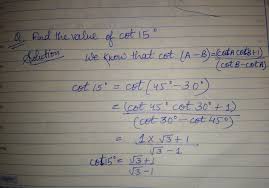 Q. Find the value of cot 15°
Solution We know that cot (A-B) = (cotA cotB+1)
(cotB-cotA)
cot 15° = cot (45°-30°)
= (cot 45° cot 30° + 1)
(cot 30° - cot 45°)
= 1 × √3 + 1
√3 - 1
cot 15° = √3+1
√3-1